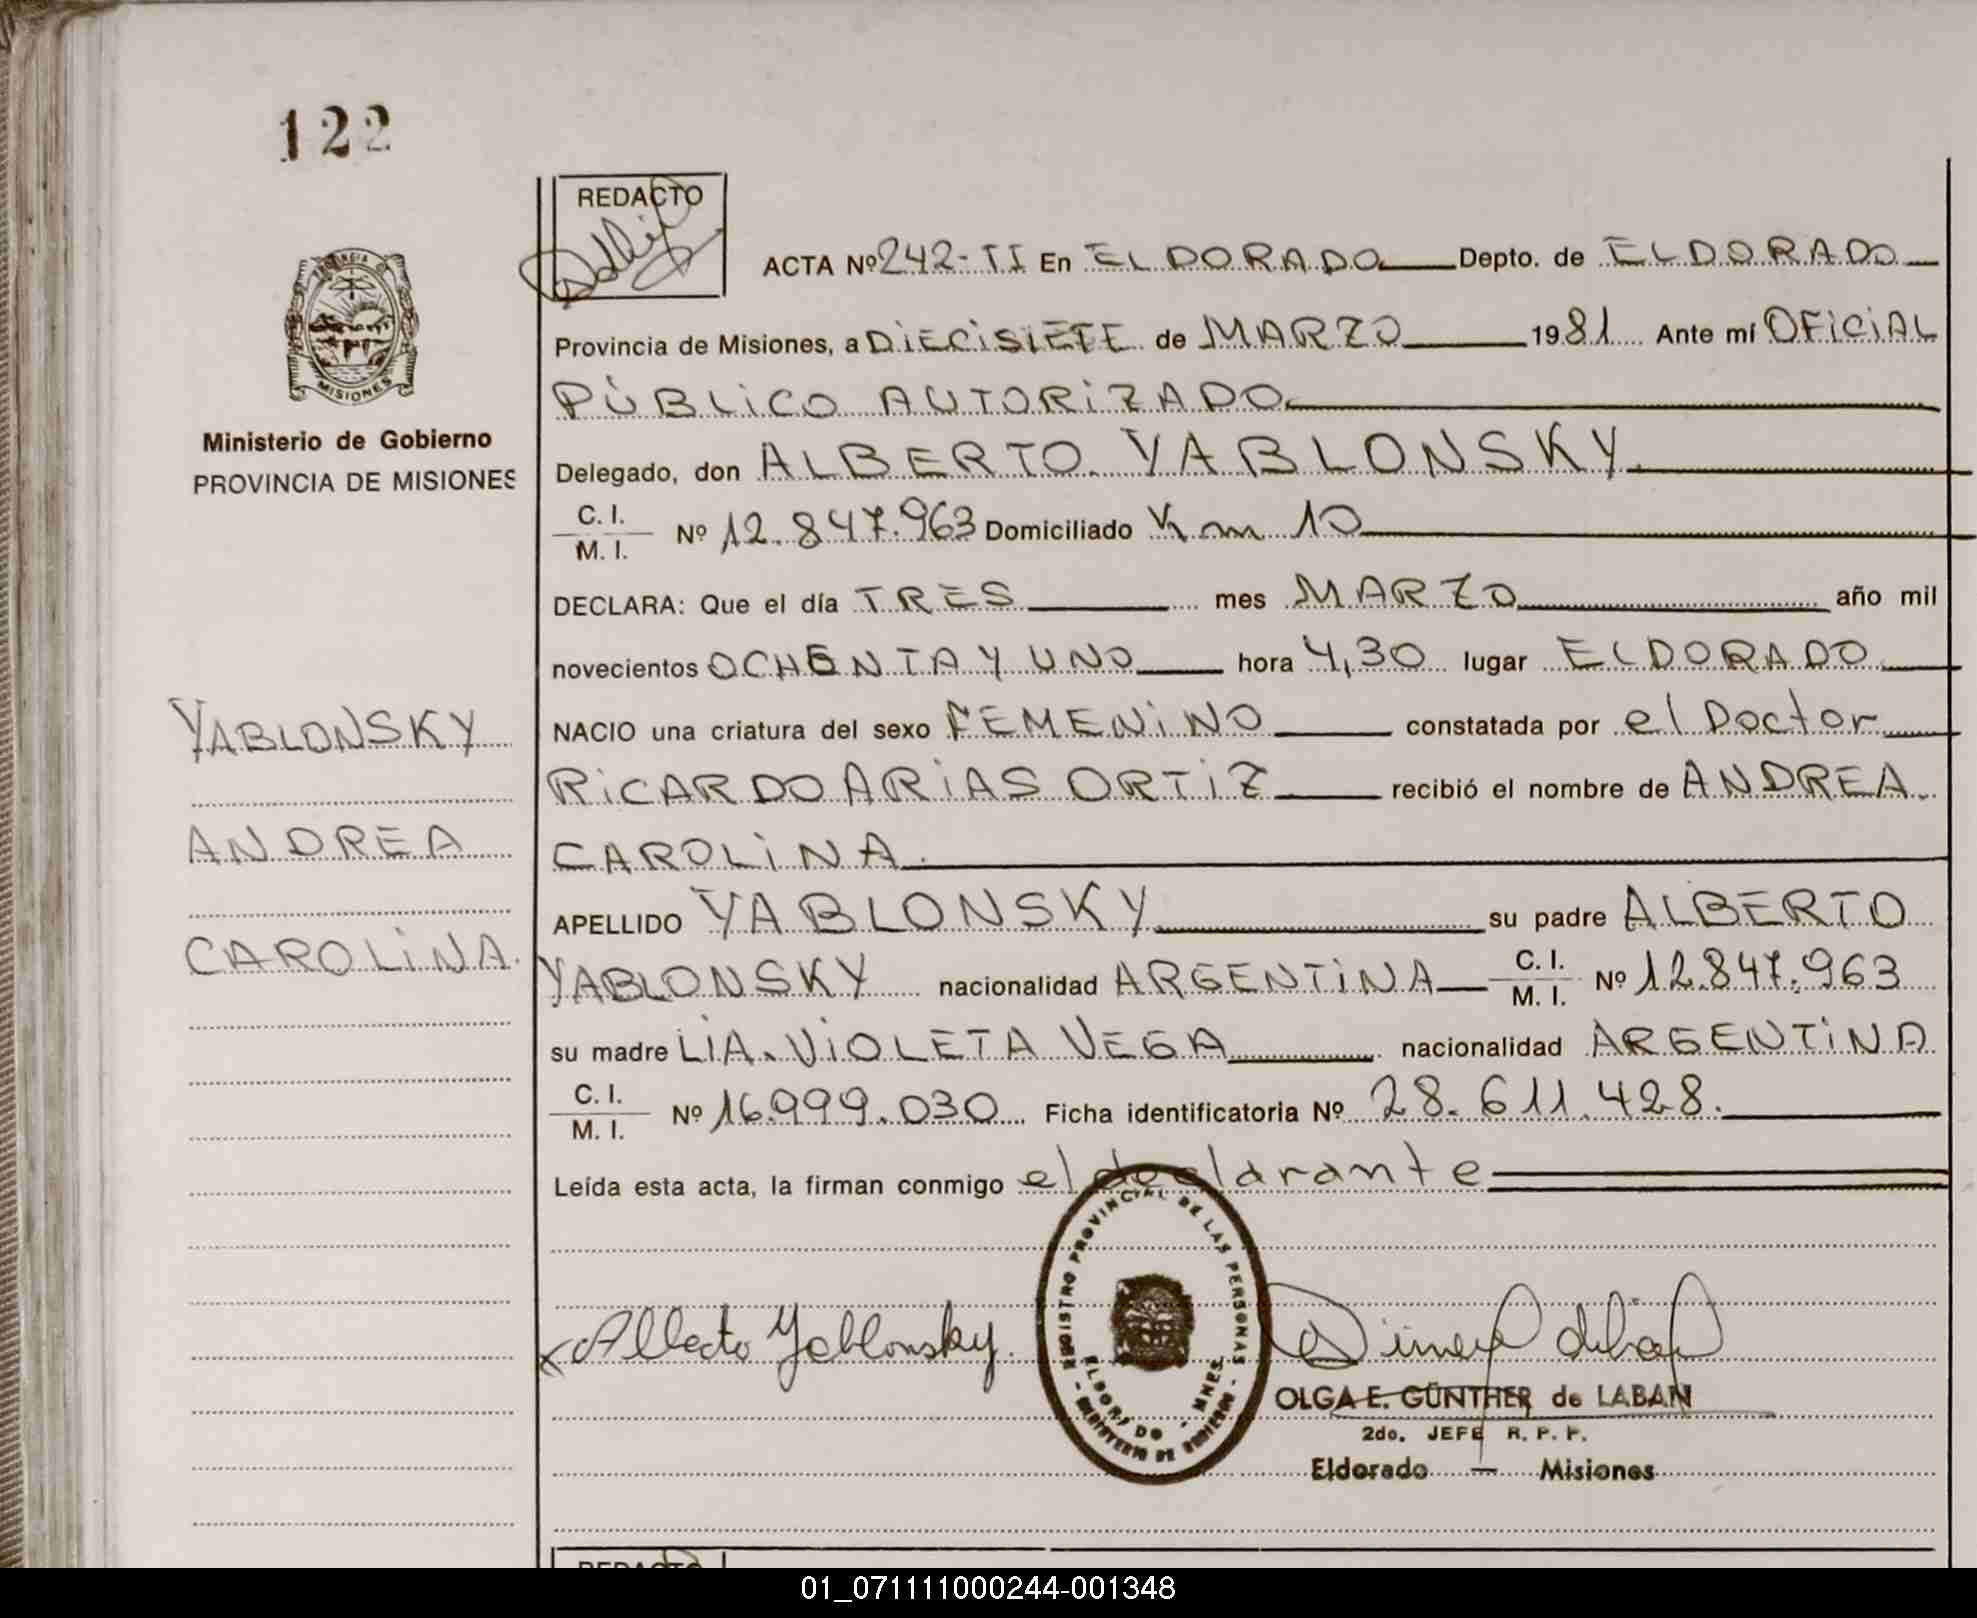 122
REDACTO
ACTA Nº 242-II En ELDORADO Depto. de ELDORADO
Provincia de Misiones, a DIECISIETE de MARZO 1981 Ante mí OFICIAL
PÚBLICO AUTORIZADO
Delegado, don ALBERTO YABLONSKY
C. I.
M. I. Nº 12.847.963 Domiciliado Km 10
DECLARA: Que el día TRES mes MARZO año mil
novecientos OCHENTA Y UNO hora 4,30 lugar ELDORADO
NACIO una criatura del sexo FEMENINO constatada por el Doctor
RICARDO ARIAS ORTIZ recibió el nombre de ANDREA
CAROLINA.
APELLIDO YABLONSKY su padre ALBERTO
YABLONSKY nacionalidad ARGENTINA C. I. M. I. Nº 12.847.963
su madre LIA VIOLETA VEGA nacionalidad ARGENTINA
C. I.
M. I. Nº 16.999.030 Ficha identificatoria Nº 28.611.428.
Leída esta acta, la firman conmigo el declarante
PROVINCIA DE
MISIONES
Ministerio de Gobierno
PROVINCIA DE MISIONES
YABLONSKY
ANDREA
CAROLINA.
Alberto Yablonsky.
REGISTRO PROVINCIAL DE LAS PERSONAS
ELDORADO - MNES.
- MINISTERIO DE GOBIERNO -
OLGA E. GÜNTHER de LABAN
2do. JEFE R. P. P.
Eldorado — Misiones
REDACTO
01_071111000244-001348